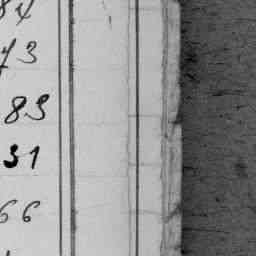 84
73
83
31
66